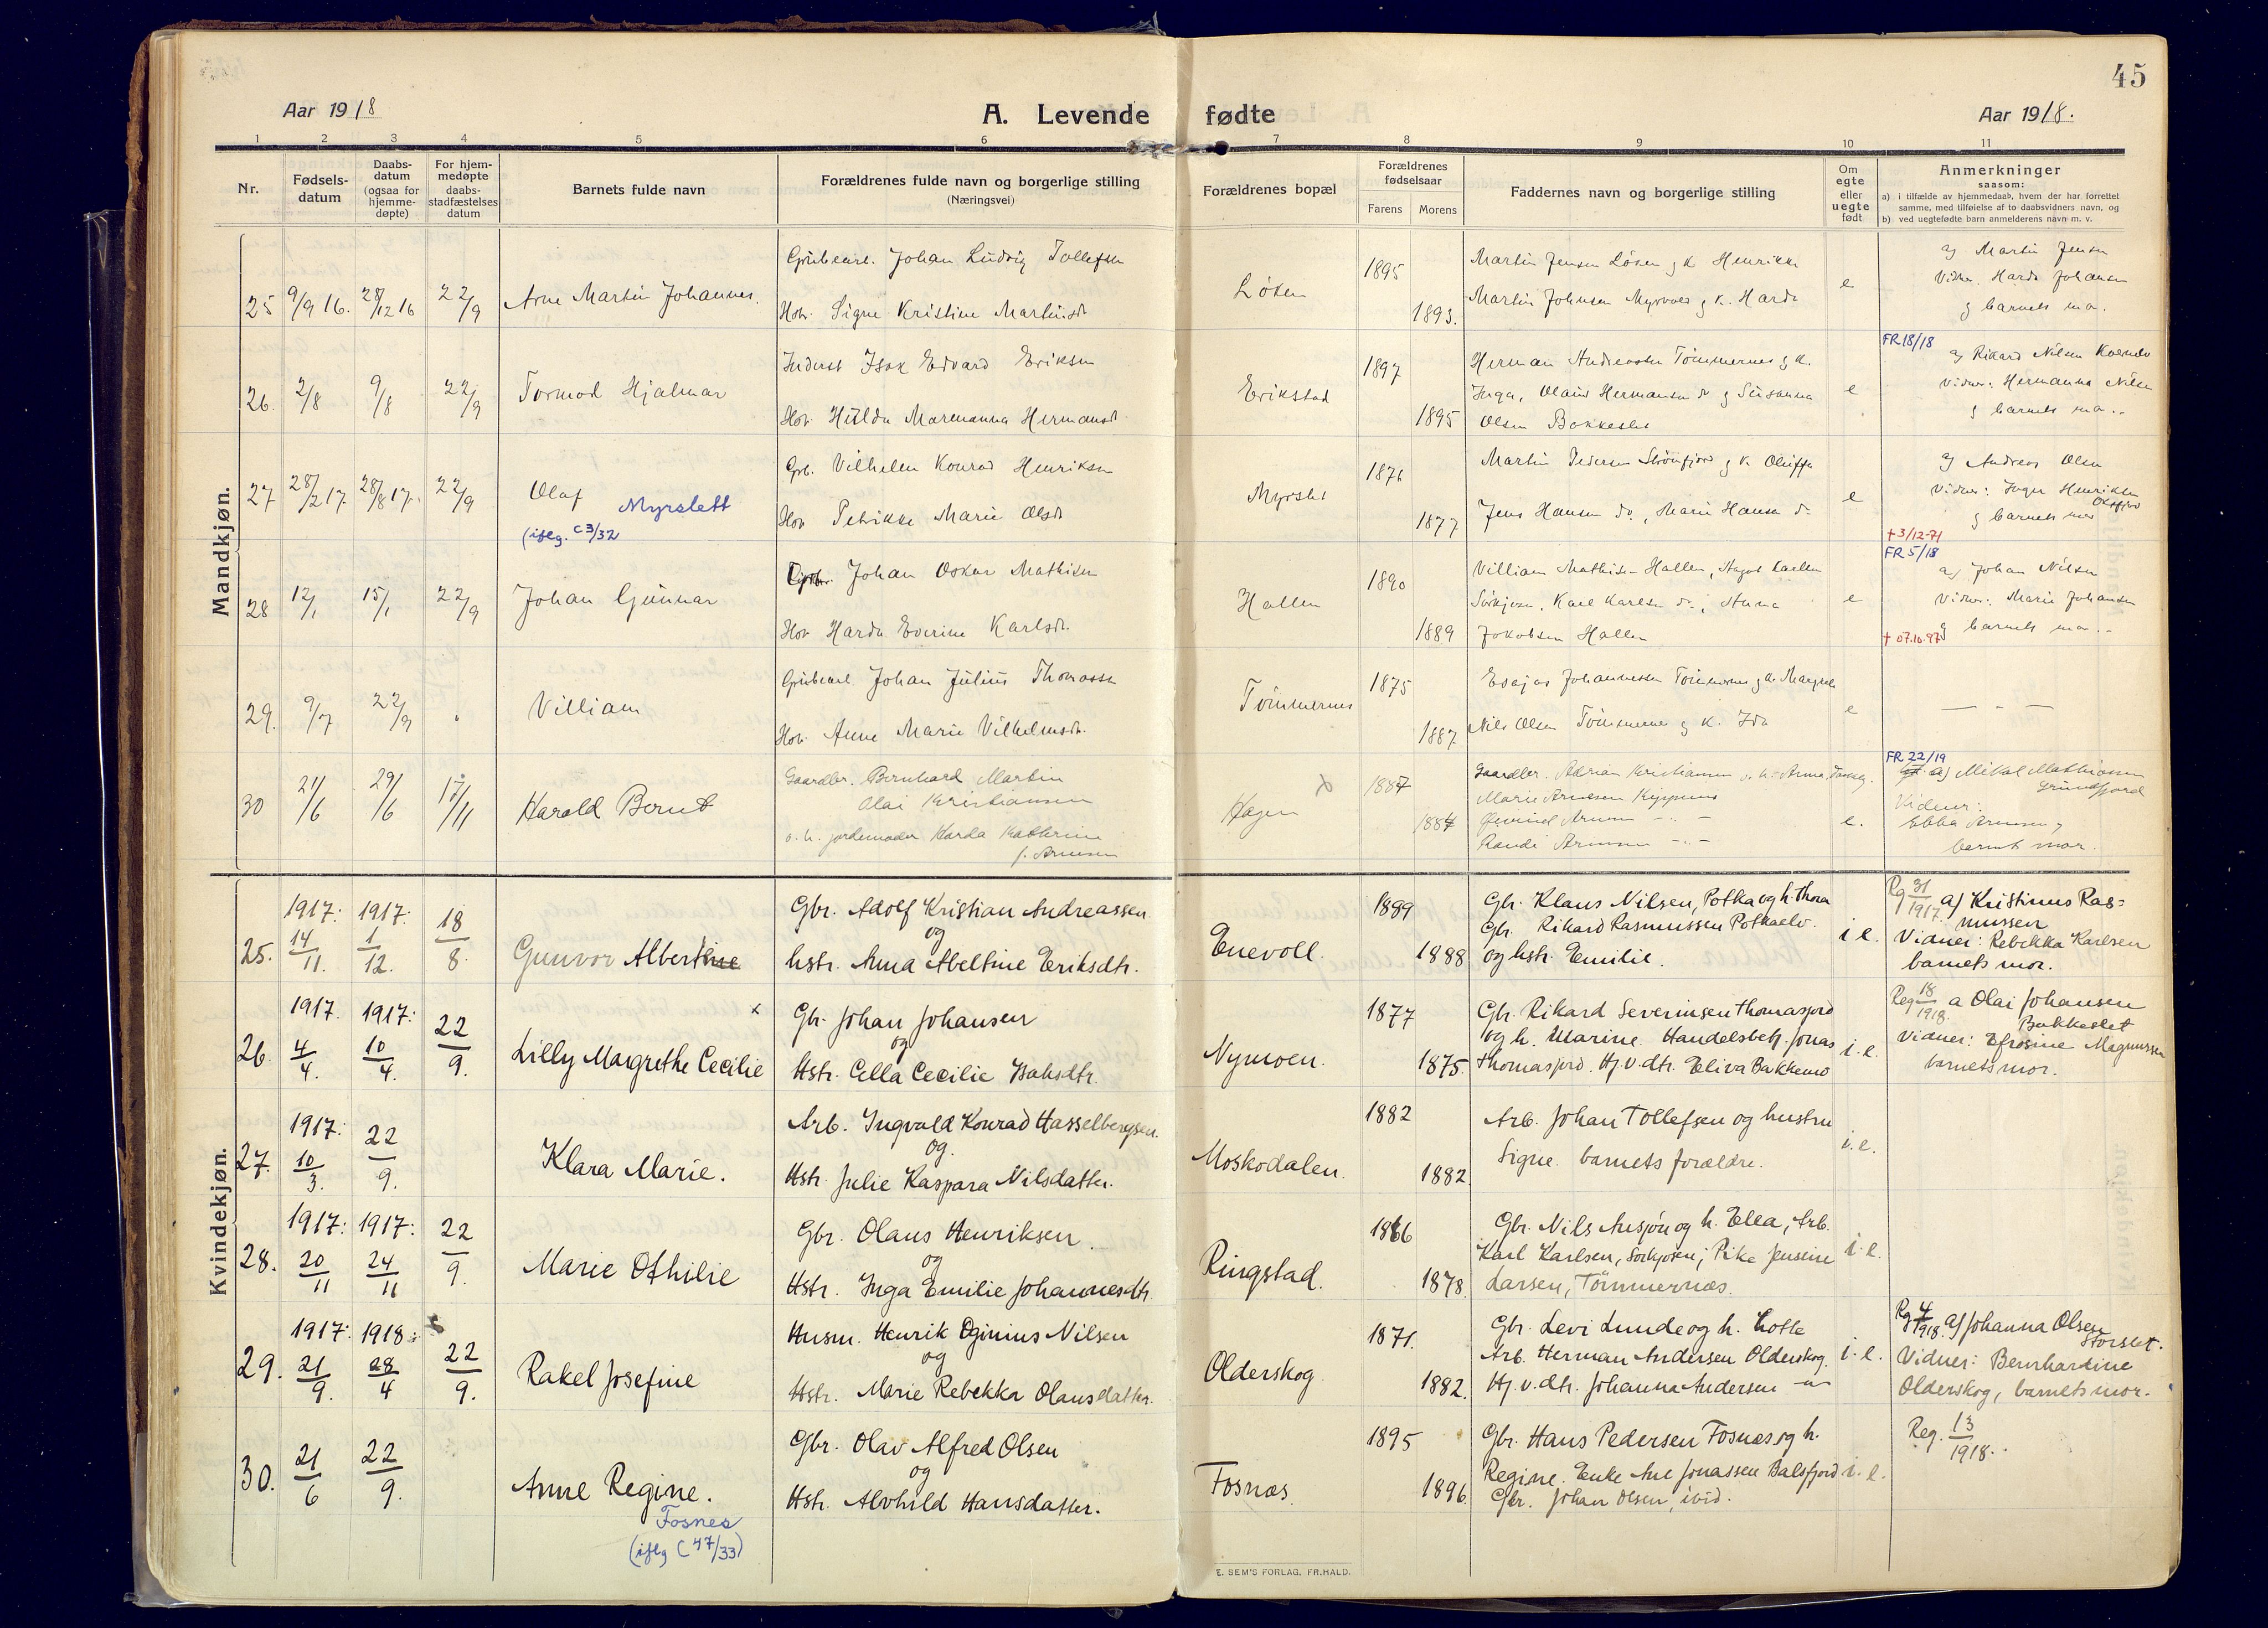 45
Aar 1918
A. Levende fødte
Aar 1918.
1 2 3 4 5 6 7 8 9 10 11
Nr.
Fødsels-
datum
Daabs-
datum
(ogsaa for
hjemme-
døpte)
For hjem-
medøpte
daabs-
stadfæstelses
datum
Barnets fulde navn
Forældrenes fulde navn og borgerlige stilling
(Næringsvei)
Forældrenes bopæl
Forældrenes
fødselsaar
Farens Morens
Faddernes navn og borgerlige stilling
Om
egte
eller
uegte
født
Anmerkninger
saasom:
a) i tilfælde av hjemmedaab, hvem der har forrettet
samme, med tilføielse af to daabsvidners navn, og
b) ved uegtefødte barn anmelderens navn m. v.
Mandkjøn.
25 9/9 16. 28/12 16 22/9
Arne Martin Johannes.
Johan Ludvig Tollefsen
Signe Kristine
1895
1893.
Martin Jensen
e
a) Martin Jensen
Vidner. Harda Johansen
g barnets mor.
26. 2/8 9/8 22/9
Tormod Hjalmar
Inderst Isak Edvard Eriksen
Hulda Marmanna
Erikstad
1897
1895
Herman
Inga,
Olsen
e
FR 18/18
a) Rikard Nilsen
Vidner: Hermanna Nilsen
g barnets mor.
27 28/2 17. 28/8 17. 22/9
Olaf Myrslett
(iflg. C 3/32
Gbr. Vilhelm Konrad Henriksen
Petrikke Marie
1876
1877
Martin Pedersen
Jens Hansen do., Marie Hansen do.
e
a) Andreas Olsen
Vidner: Inger Henriksen
g barnets mor
+ 3/12-71
28 12/1 15/1 22/9
Johan Gunnar
Johan Oskar Mathisen
Harda Everine Karlsdt.
Hallen
1890
1889
William Mathisen Hallen,
Karl Karlsen do., Anna
Jokobsen Hallen
e
FR 5/18
a) Johan Nilsen
Vidner: Marie Johansen
g barnets mor.
+ 07.10.97
29. 9/7 22/9
Villiam
Johan Julius Thomassen
Anne Marie Vilhelmsdt.
Tömmernes
1875
1887
Esajas Johannessen Tömmernes g k.
Nils Olsen Tömmernes g k. Ida
e
— „ —
30 21/6 29/6 17/11
Harald Bernt
Gaardbr. Bernhard Martin
Olai Kristiansen
o. h. jordemoder Harda Kathrine
f. Arnesen
Hagen
1887
1884
Gaardbr. Adrian Kristiansen
Marie Arnesen
Arnesen -„-
Randi Arnesen -„-
e.
FR 22/19
a) Mikal Mathiassen
Grundfjord
Vidner:
Ebba Arnesen,
barnets mor.
Kvindekjøn.
25. 1917: 14/11. 1917: 1/12. 18/8.
Gunvor Albertine
Gbr. Adolf Kristian Andreassen
og
hstr. Anna Abeltine Eriksdtr.
Enevoll.
1889
1888
Gbr. Klaus Nilsen, Potka og h. Thora
Gbr. Rikard Rasmussen Potkaelv.
og hstr. Emilie.
i e.
Rg 31/1917. a) Kristinus Ras=
mussen
Vidner: Rebekka Karlsen
barnets mor.
26. 1917. 4/4. 1917: 10/4. 22/9.
Lilly Margrethe Cecilie
x
Gbr. Johan Johansen
og
Hstr. Cella Cecilie Isaksdtr.
Nymoen.
1877
1875.
Gbr. Rikard Severinsen Thomasjord
og h. Marine. Handelsbetj. Jonas
Thomasjord. Hj.v.dtr. Eliva Bakkemo
i.e.
Reg 18/1918. a Olai Johansen
Bakkeslet
Vidner: Efrosine Magnussen
barnets mor.
27. 1917: 10/3. 22/9.
Klara Marie.
Arb. Ingvald Konrad Hasselbergsen.
og.
Hstr. Julie Kaspara Nilsdatter.
Moskodalen.
1882
1882.
Arb. Johan Tollefsen og hustru
Signe. barnets forældre.
i.e.
28. 1917: 20/11 1917: 24/11 22/9.
Marie Othilie
Gbr. Olaus Henriksen.
og
Hstr. Inga Emilie Johannesdtr.
Ringstad.
1866
1878.
Gbr. Nils Ansjön og h. Ella, Arb.
Karl Karlsen, Sorkjosen; Pike Jensine
Larsen, Tömmernæs.
i.e.
29. 1917: 21/9. 1918: 28/4 22/9.
Rakel Josefine
Husm. Henrik Oginius Nilsen
og
Hstr. Marie Rebekka Olausdatter.
Olderskog.
1871.
1882.
Gbr. Levi Lunde og h. Lotte
Arb. Herman Andersen Olderskog.
Hj.v.dtr. Johanna Andersen -„-
i.e.
Rg 4/1918. a) Johanna Olsen
Storslet.
Vidner: Bernhardine
Olderskog, barnets mor.
30. 21/6 22/9.
Anne Regine.
Fosnes
(iflg C 47/33)
Gbr. Olav Alfred Olsen
og
Hstr. Alvhild Hansdatter.
Fosnæs.
1895
1896.
Gbr. Hans Pedersen Fosnæs og h.
Regine. Enke Ane Jonassen Balsfjord
Gbr. Johan Olsen, ibid.
i.e.
Reg. 13/1918.
E. SEM'S FORLAG, FR.HALD.